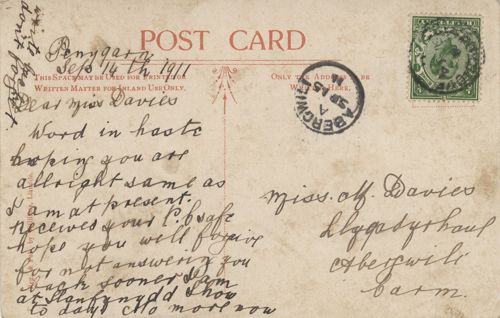 write back
don't forget
POST CARD
Penygarn
Sep 14th 1911
THIS SPACE MAY BE USED FOR PRINTED OR
WRITTEN MATTER FOR INLAND USE ONLY.
ONLY THE ADDRESS TO BE
WRITTEN HERE.
ABERGWILI
A
SP 15
11
Dear Miss Davies
Word in haste
hoping you are
allright same as
I am at present.
receives your P.C safe
hope you will forgive
for not answering you
back sooner I am
at Llanfynydd Show
to day. No more now
Miss. M. Davies
Llygadyrhaul
Abergwili
Carm.